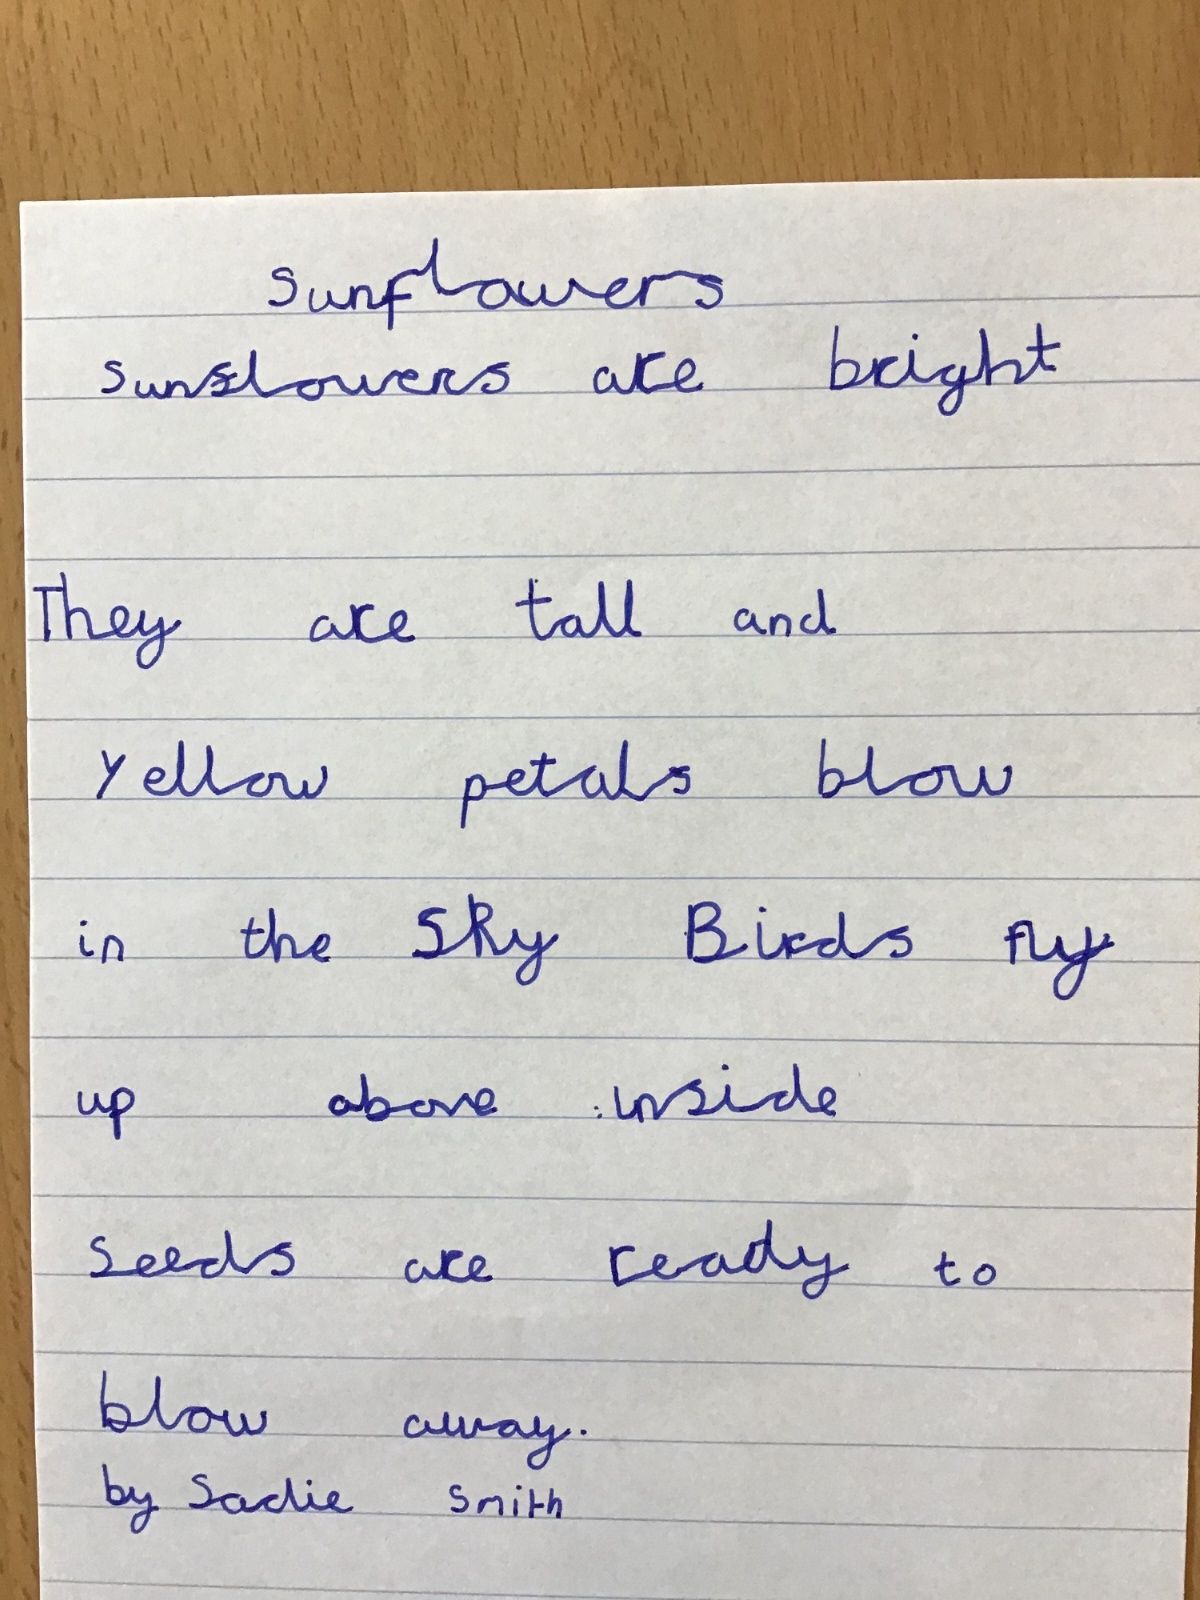 Sunflowers
Sunflowers are bright
They are tall and
Yellow petals blow
in the Sky Birds fly
up above inside
Seeds are ready to
blow away.
by Sadie Smith